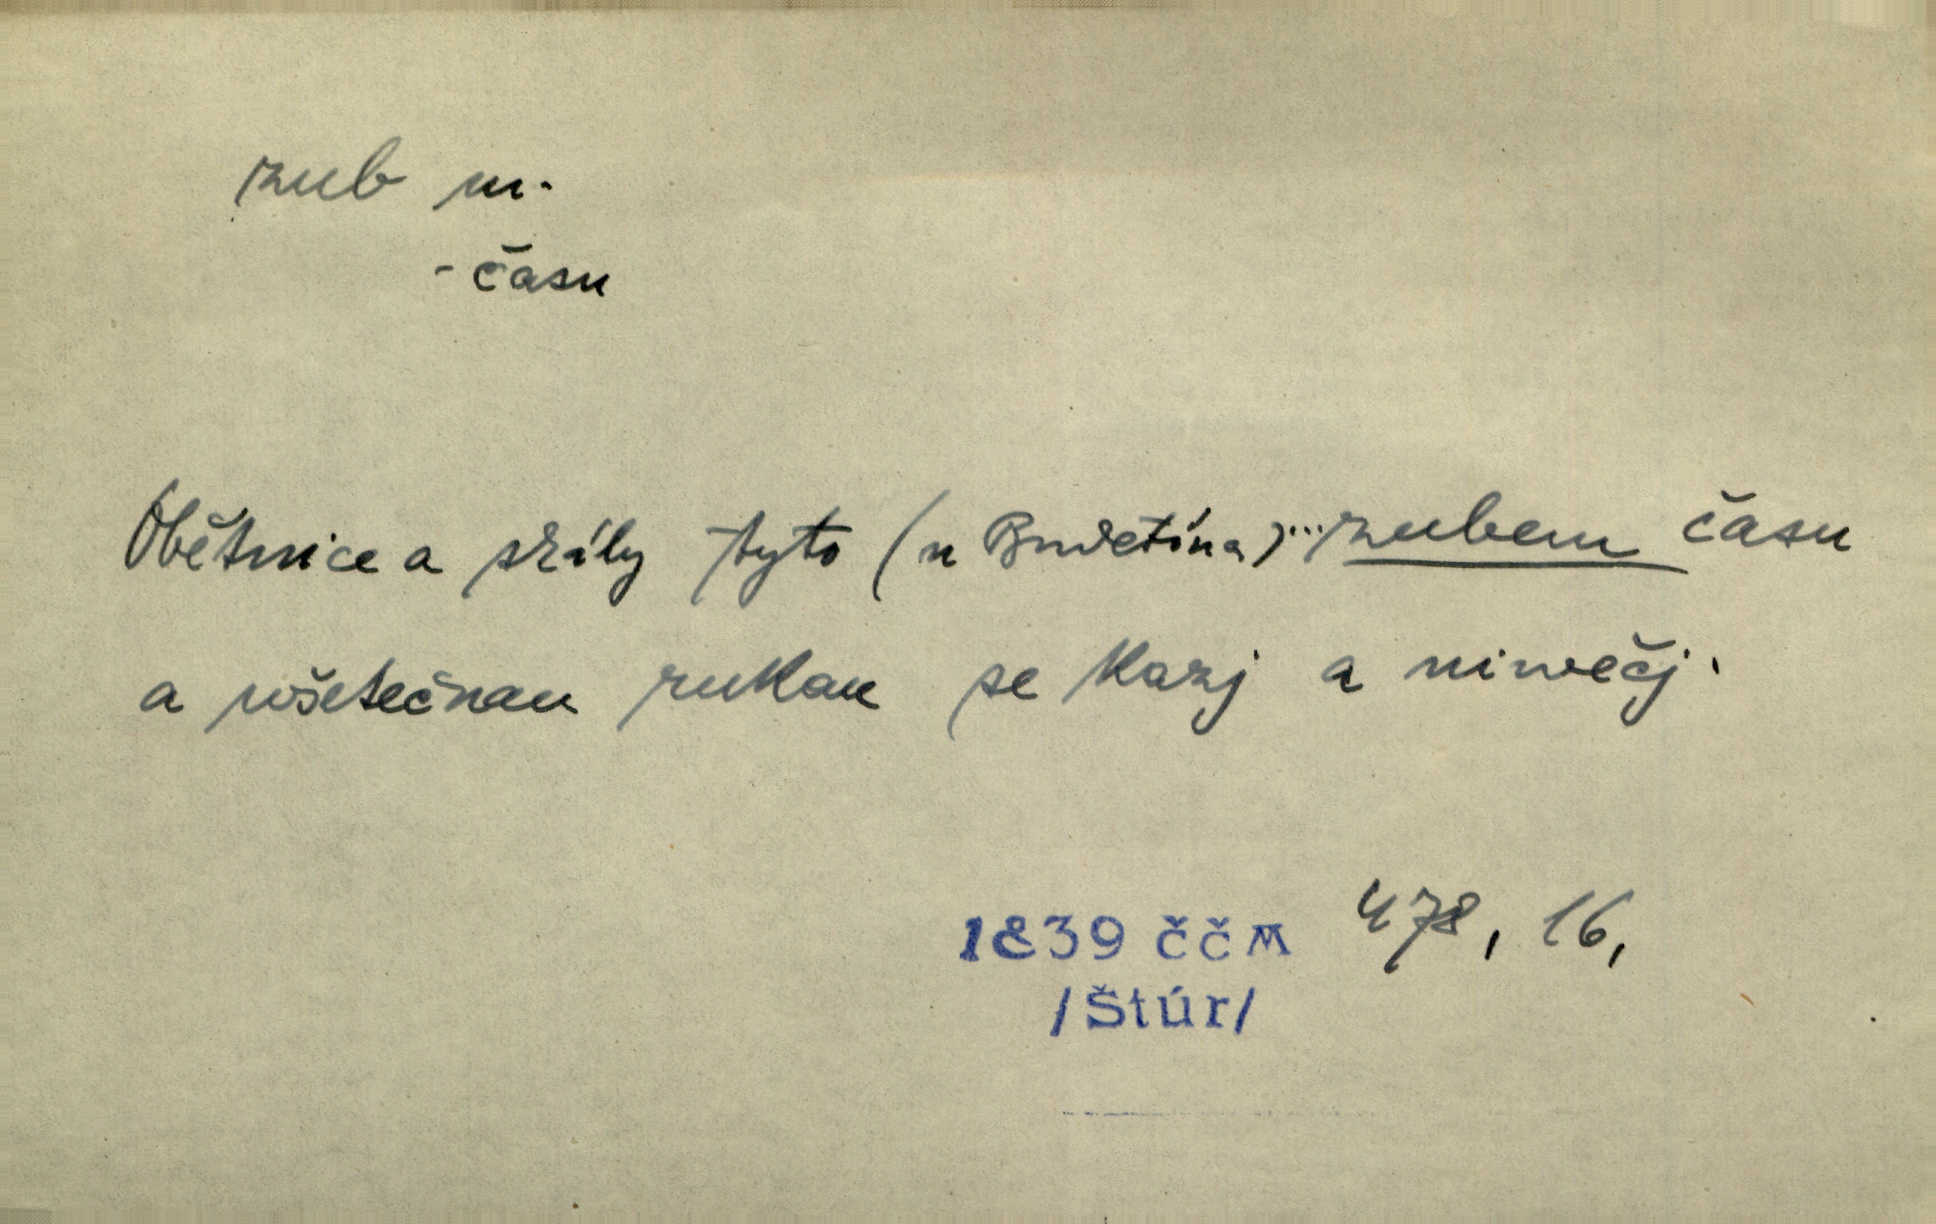 zub m.
- času
Obětnice a skály tyto (u Budetína)... zubem času
a wšetečnau rukau se kazj a niwečj.
1839 ččm 478, 16,
/Štúr/